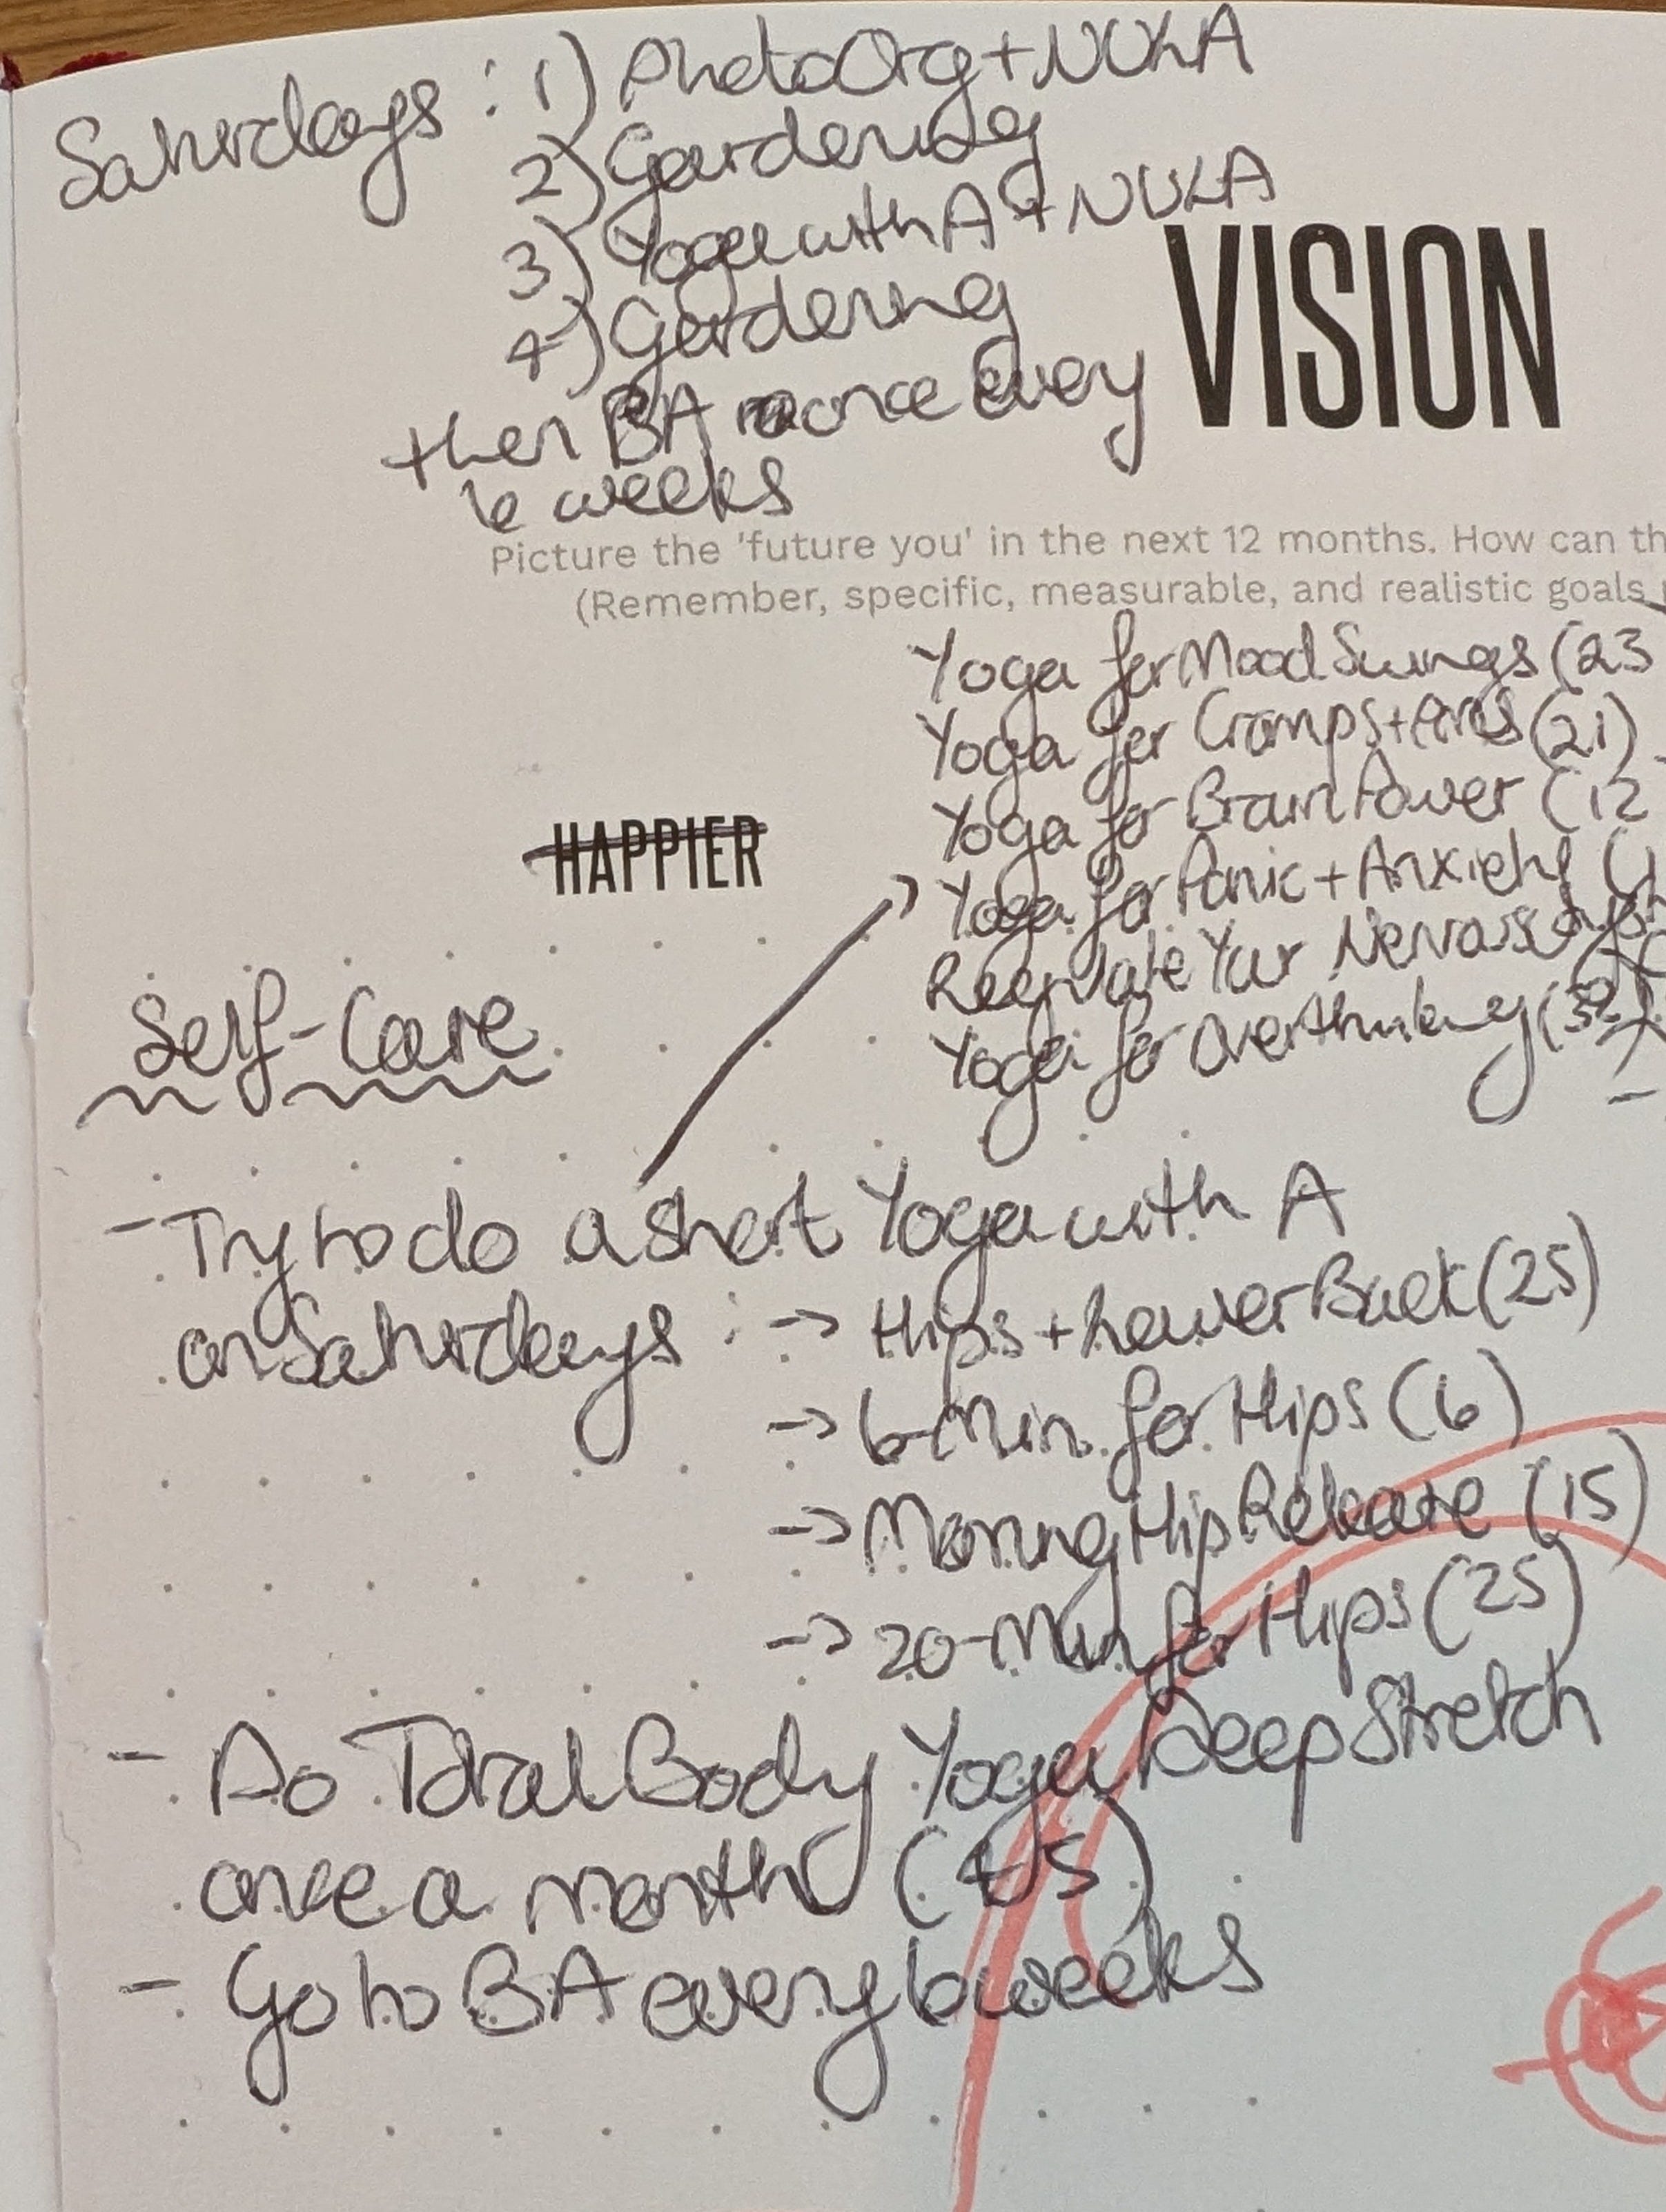 Saturdays : 1) PhotoOrg + NULA
2) Gardening
3) Yoga with A + NULA
4) Gardening
then BA once Every
6 weeks
VISION
Picture the 'future you' in the next 12 months. How can th
(Remember, specific, measurable, and realistic goals
Yoga for Mood Swings (23
Yoga for Cramps + PMS (21)
Yoga for Brain Power (12
Yoga for Panic + Anxiety (
Regulate Your Nervous
Yoga for Overthinking
HAPPIER
Self-Care
- Try to do a short Yoga with A
on Saturdays : -> Hips + Lower Back (25)
-> 6-Min. for Hips (6)
-> Morning Hip Release (15)
-> 20-Min for Hips (25)
- Do Total Body Yoga Deep Stretch
once a month (45)
- Go to BA every 6 weeks